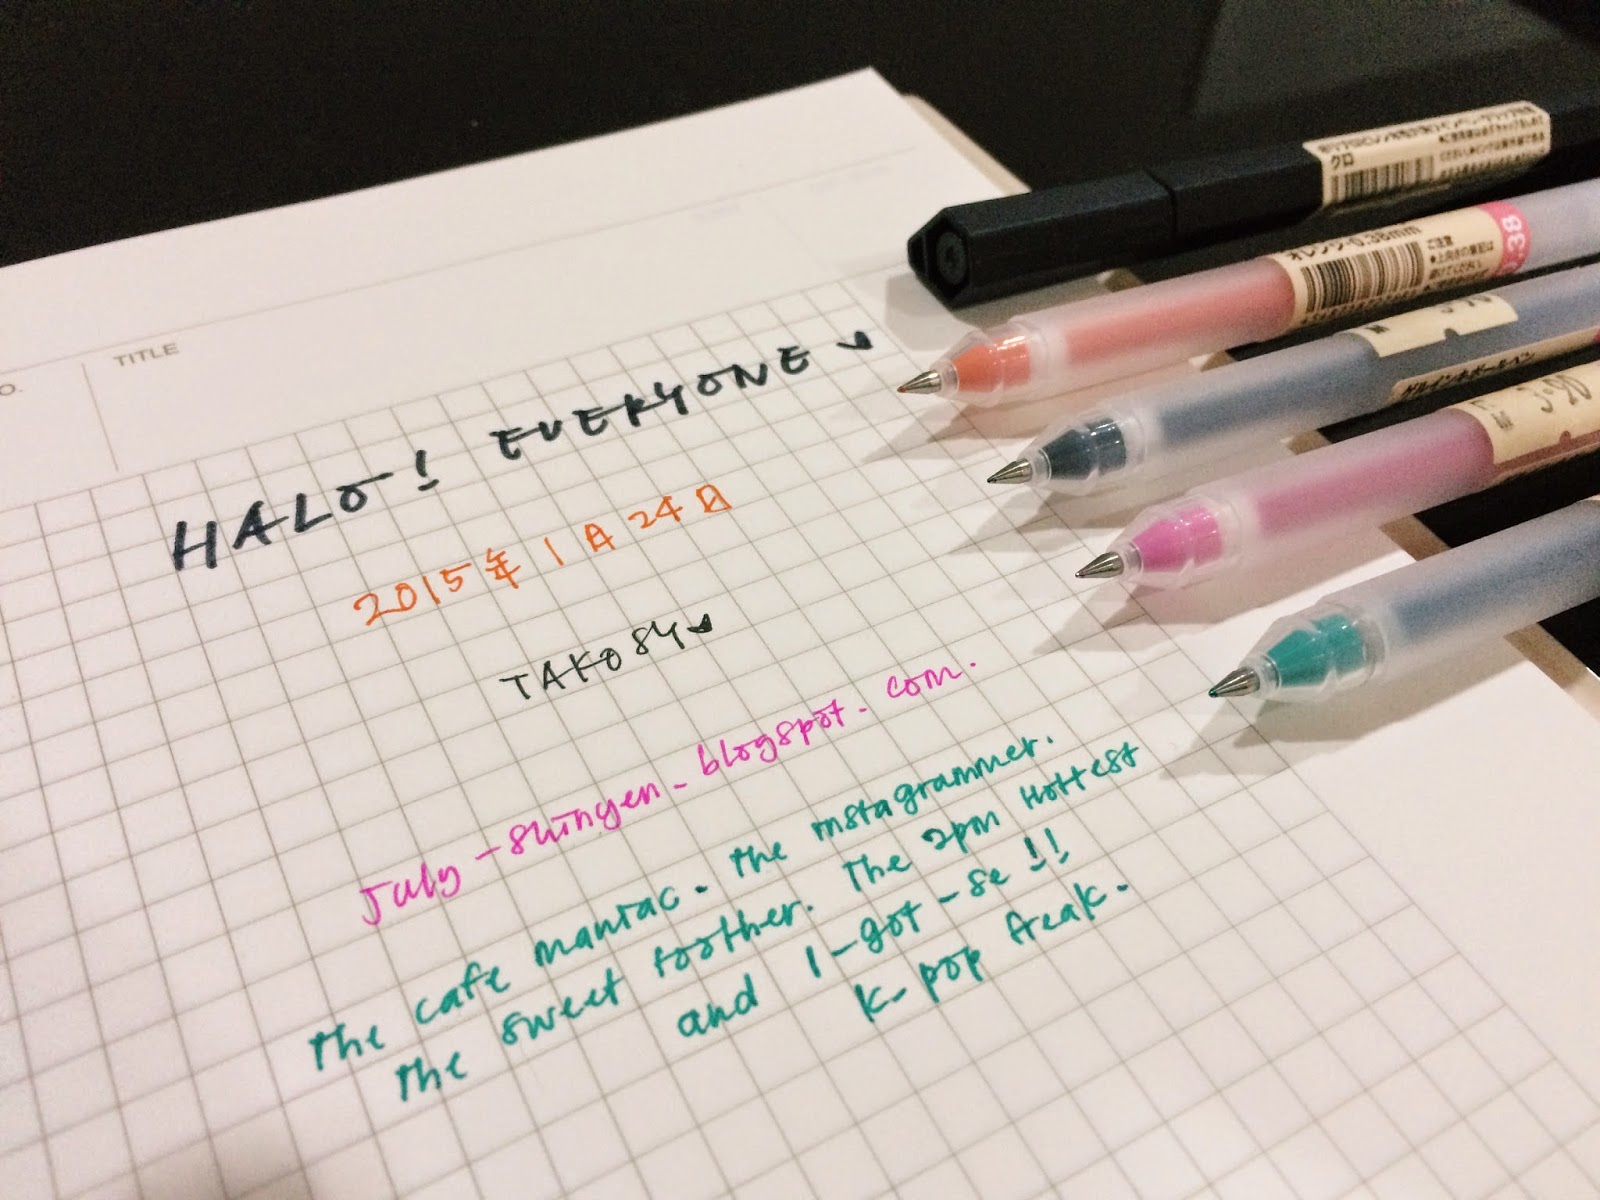 TITLE
HALO! EVERYONE
2015年1月24日
TAKO84
july-shinyen-blogspot.com.
the cafe maniac. the instagrammer.
the sweet toother. The 2pm Hottest
and I-got-se!!
K-pop freak.
クロ
オレンジ・0.38mm
ご注意
0.38
ゲルインキボールペン